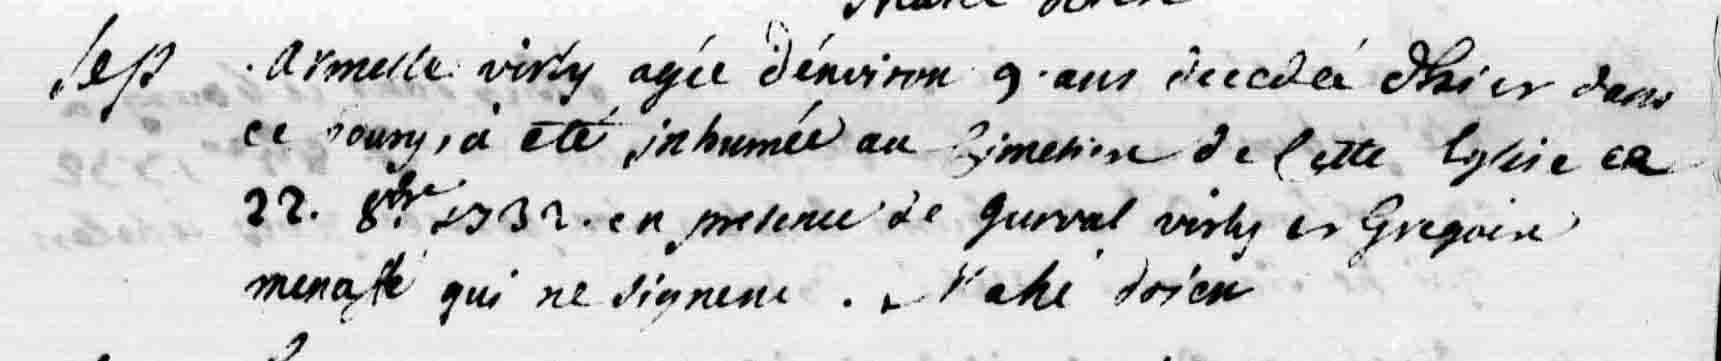 Sep . Armelle visly agée d'environ 9. ans decedeé d'hier dans
ce bourg, a eté inhumée au Cimetiere de Cette Eglise ce
22. 8bre 1732. en presence de Gurval visly et Gregoire
qui ne signent . Mahé doien